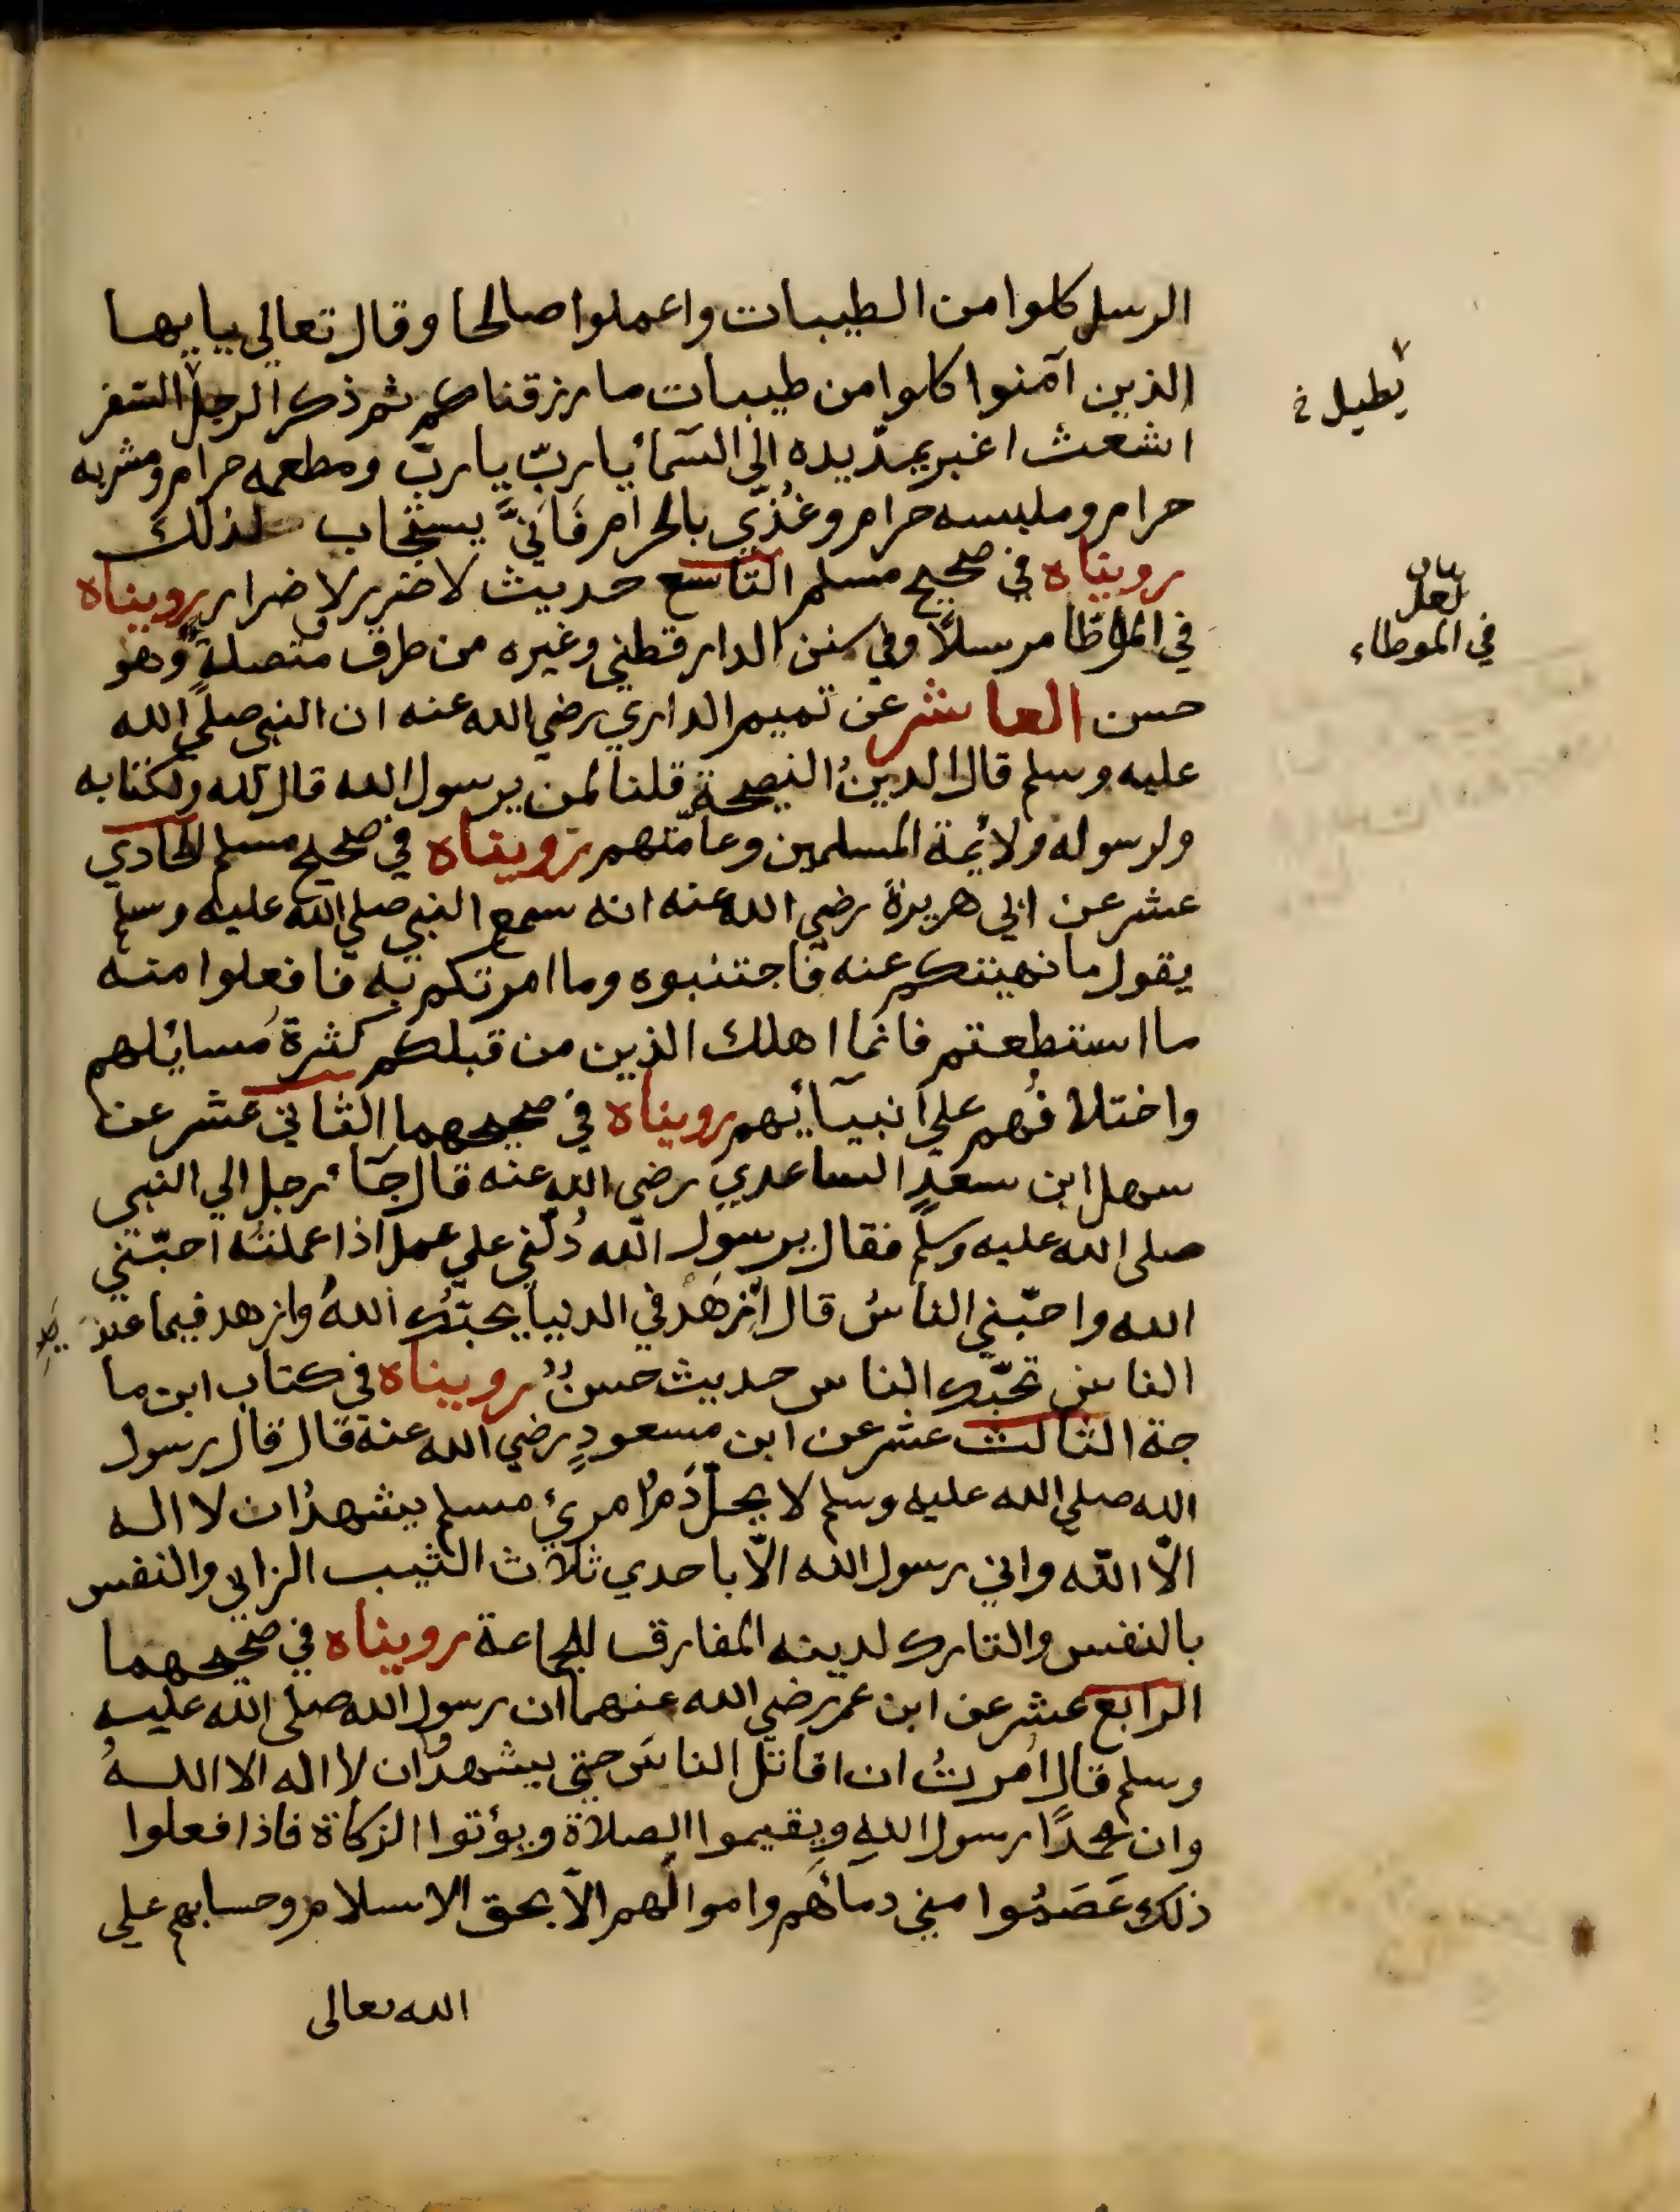 الرسل كلوا من الطيبات واعملوا صالحا وقال تعالي يايها
الذين آمنوا كلوا من طيبات ما رزقناكم ثم ذكر الرجل السفر
يطيل
اشعث اغبر يمدّ يده الي السمآء يا ربّ يا ربّ ومطعمه حرام ومشربه
حرام وملبسه حرام وغُذّي بالحرام فَانيَّ يستجاب لذلك
رويناه في صحيح مسلم التاسع حديث لا ضرر ولا ضرار رويناه
لعل
في الموطاء
في الموطّا مرسلاً وفي سنن الدارقطني وغيره من طرق متصلةٍ وهو
حسن العاشر عن تميم الداري رضي الله عنه ان النبي صلي الله
عليه وسلم قال الدينُ النصيحة قلنا لمن يرسول الله قال لله ولكتابه
ولرسوله ولائمة المسلمين وعامّتهم رويناه في صحيح مسلم الحادي
عشر عن ابي هريرة رضي الله عنه انه سمع النبي صلي الله عليه وسلم
يقول ما نهيتكم عنه فاجتنبوه وما امرتكم به فافعلوا منه
ما استطعتم فانما اهلك الذين من قبلكم كثرةُ مسائلهم
واختلافُهم علي انبيآئهم رويناه في صحيحهما الثاني عشر عن
سهل ابن سعدٍ الساعدي رضي الله عنه قال جآء رجل الي النبي
صلى الله عليه وسلم فقال يرسول الله دُلّني علي عمل اذا عملتُه احبّني
الله واحبّني الناسُ قال اِزهَدْ في الدنيا يحبّك اللهُ وازهد فيما عند
الناس تحبّك الناس حديث حسنٌ رويناه في كتاب ابن ما
جة الثالث عشر عن ابن مسعودٍ رضي الله عنه قال قال رسول
الله صلي الله عليه وسلم لا يحلّ دَمُ امرئ مسلم يشهدُ ان لا اله
الّا الله واني رسول الله الّا باحدي ثلاث الثيب الزاني والنفس
بالنفس والتارك لدينه المفارق للجماعة رويناه في صحيحهما
الرابع عشر عن ابن عمر رضي الله عنهما ان رسول الله صلى الله عليه
وسلم قال اُمرتُ ان اقاتل الناسَ حتي يشهدوُا ان لا اله الا اللهُ
وان محمدًا رسول اللهِ ويقيموا الصلاة ويؤتوا الزكاة فاذا فعلوا
ذلك عَصَمُوا مني دمآئهم واموالهم الّا بحق الاسلام وحسابهم علي
الله تعالى